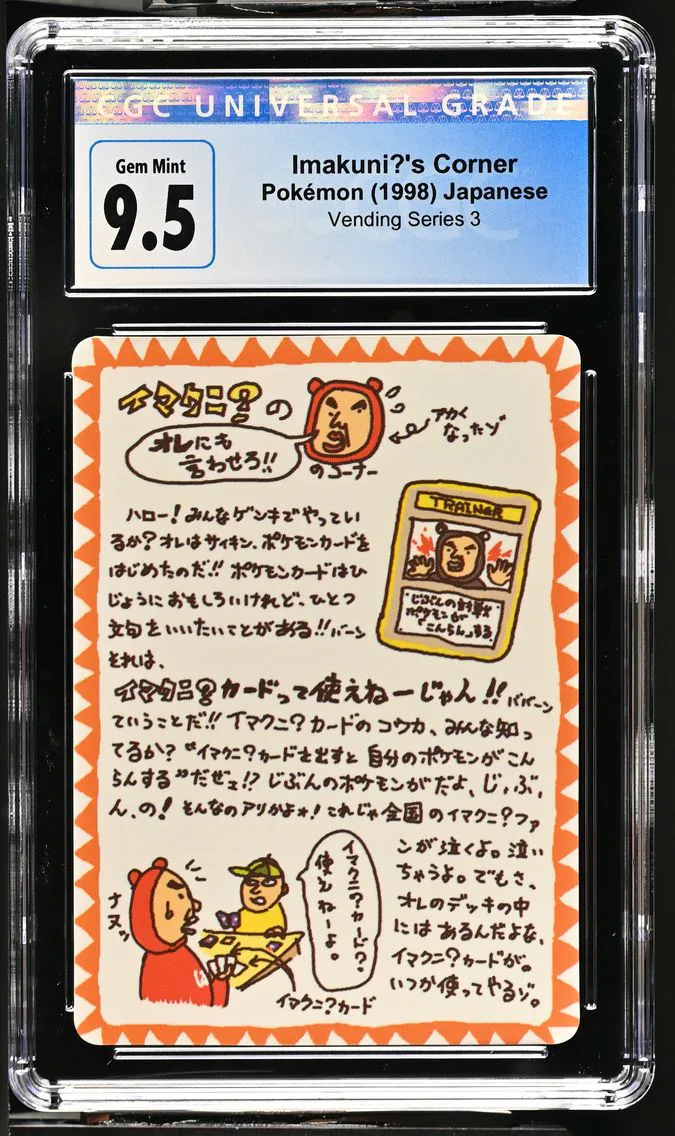 CGC UNIVERSAL GRADE
Gem Mint
9.5
Imakuni?'s Corner
Pokémon (1998) Japanese
Vending Series 3
イマクニ?の
オレにも
言わせろ!!
のコーナー
アカく
なったゾ
TRAINER
じぶんの対戦
ポケモンが
「こんらん」する。
ハロー!みんなゲンキでやってい
るか?オレはサイキン、ポケモンカードを
はじめたのだ!!ポケモンカードはひ
じょうにおもしろいけれど、ひとつ
文句をいいたいことがある!!バーン
それは、
イマクニ?カードって使えねーじゃん!!ババーン
ていうことだ!!イマクニ?カードのコウカ、みんな知っ
てるか?"イマクニ?カードを出すと自分のポケモンがこん
らんする"だぜェ!?じぶんのポケモンがだよ、じ、ぶ、
ん、の!そんなのアリかよォ!これじゃ全国のイマクニ?ファ
ンが泣くよ。泣い
ちゃうよ。でもさ、
オレのデッキの中
にはあるんだよな、
イマクニ?カードが。
いつか使ってやるゾ。
イマクニ?カード?
使えねーよ。
ナヌッ
イマクニ?カード